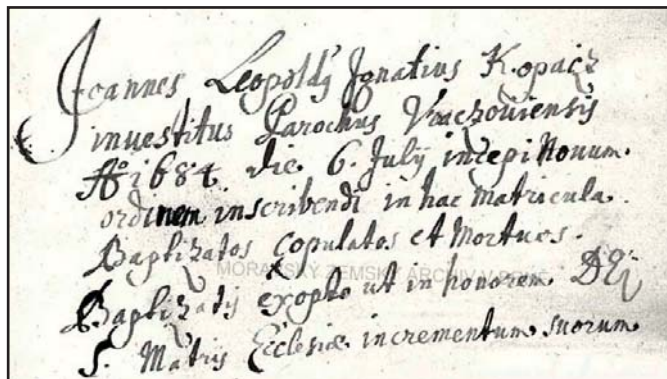 Joannes Leopoldy Ignatius Kopacz
investitus Parochus Vraczoviensis
Aº 1684 die 6. July incepi Novum
ordinem inscribendi in hac Matricula.
Baptizatos Copulatos et Mortuos.
MORAVSKÝ ZEMSKÝ ARCHIV V BRNĚ
Baptizatis exopto ut in honorem DEi
S. Matris Ecclesiæ incrementum suorum